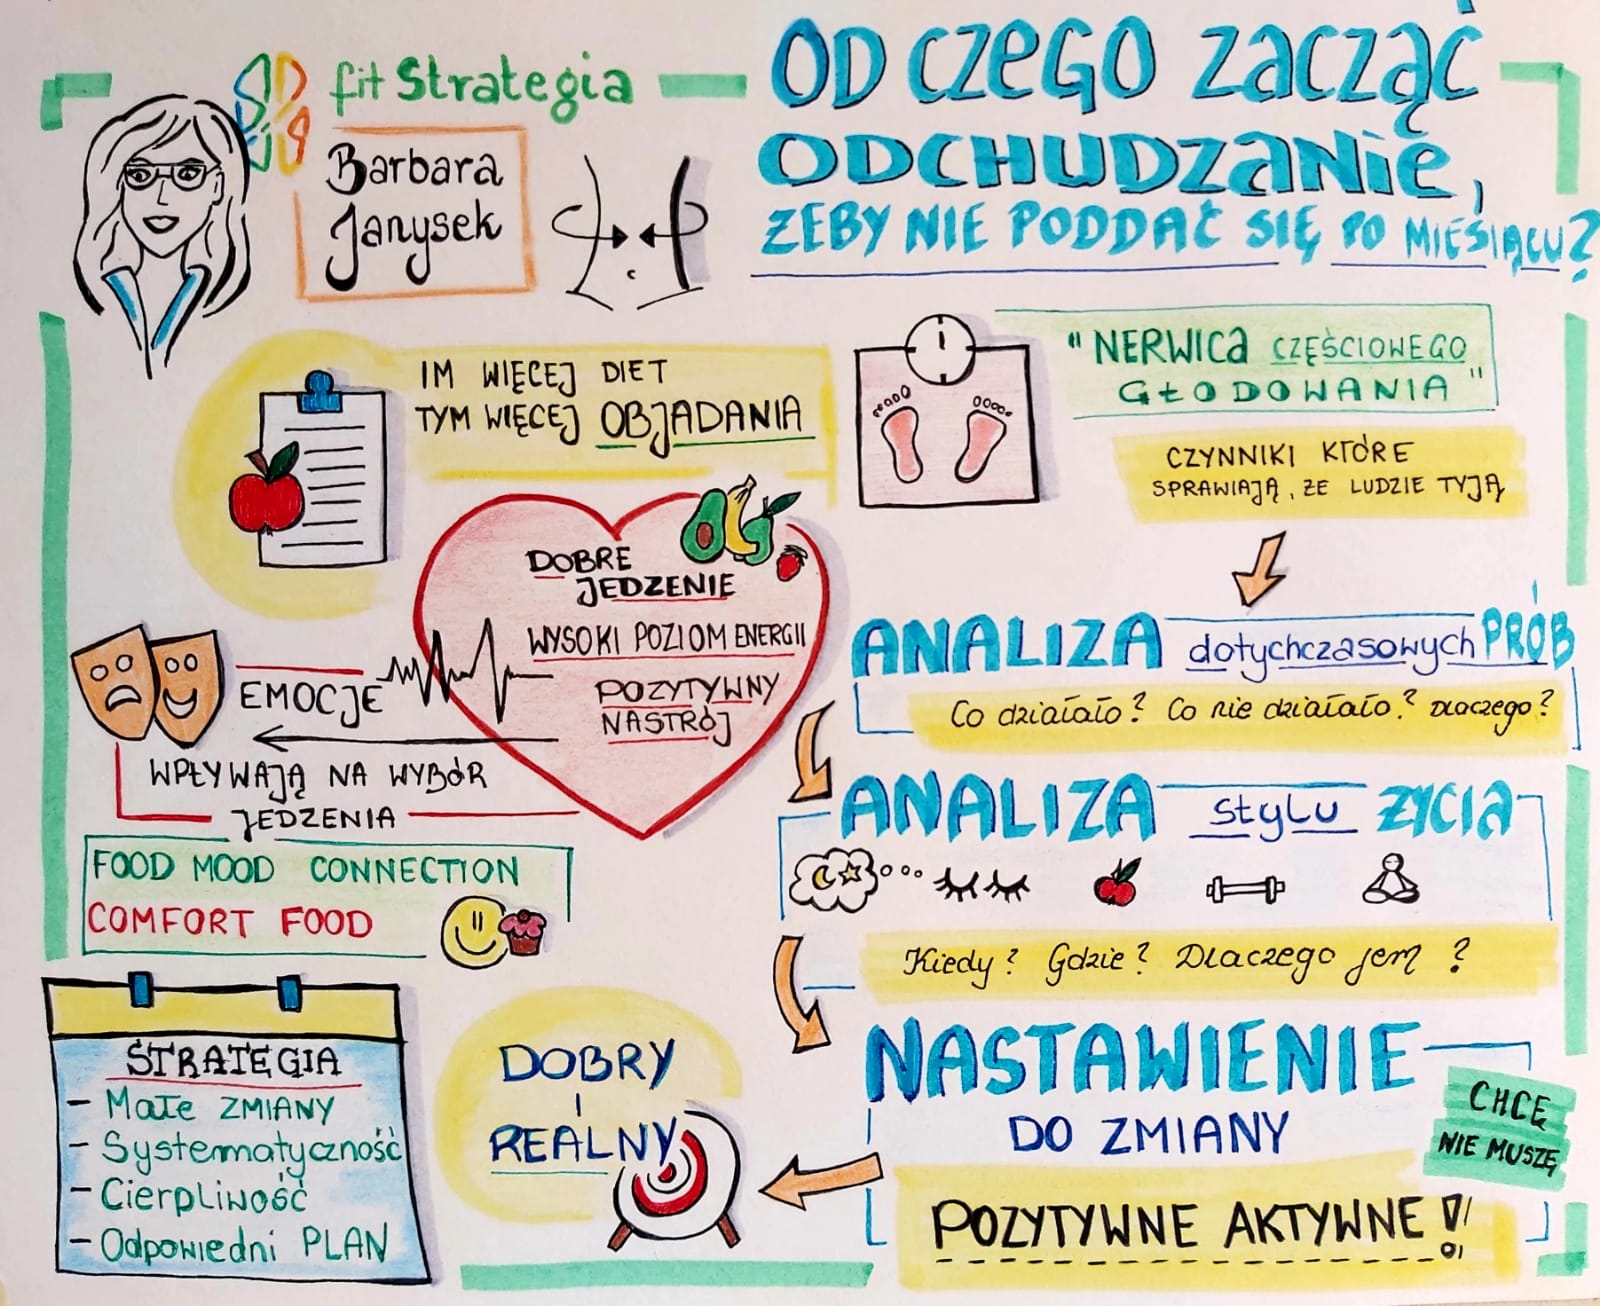 fit Strategia
Barbara
Janysek
OD CZEGO ZACZĄĆ
ODCHUDZANIE,
ŻEBY NIE PODDAĆ SIĘ PO MIESIĄCU?
IM WIĘCEJ DIET
TYM WIĘCEJ OBJADANIA
"NERWICA CZĘŚCIOWEGO
GŁODOWANIA"
CZYNNIKI KTÓRE
SPRAWIAJĄ, ŻE LUDZIE TYJĄ
DOBRE
JEDZENIE
WYSOKI POZIOM ENERGII
POZYTYWNY
NASTRÓJ
EMOCJE
WPŁYWAJĄ NA WYBÓR
JEDZENIA
FOOD MOOD CONNECTION
COMFORT FOOD
ANALIZA dotychczasowych PRÓB
Co działało? Co nie działało? Dlaczego?
ANALIZA stylu ŻYCIA
Kiedy? Gdzie? Dlaczego jem?
NASTAWIENIE
DO ZMIANY
CHCĘ
NIE MUSZĘ
POZYTYWNE AKTYWNE!
DOBRY
I
REALNY
STRATEGIA
- Małe ZMIANY
- Systematyczność
- Cierpliwość
- Odpowiedni PLAN